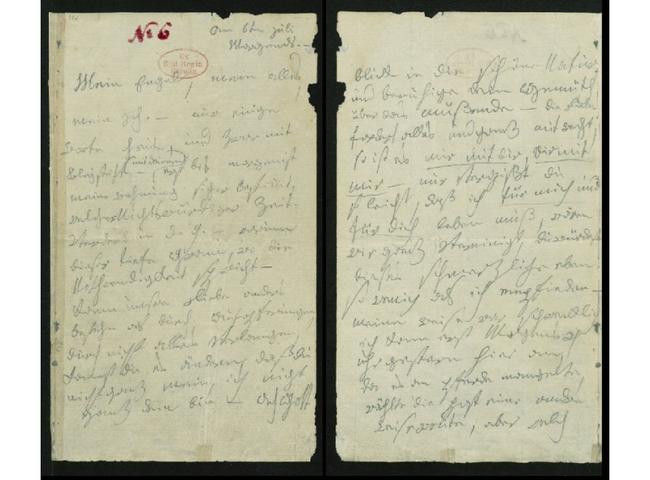 No 6
Am 6ten Juli
Morgends. –
Mein Engel, mein alles
mein Ich. – nur einige
Worte heute, und zwar mit
Bleystift – (mit deinem) erst bis morgen ist
meine Wohnung sicher bestimmt,
welcher Nichtswürdiger Zeit-
verderb in d. g. – warum
dieser tiefe Gram, wo die
Nothwendigkeit spricht –
Kann unsre Liebe anders
bestehn als durch Aufopferungen,
durch nicht alles verlangen,
kannst du es ändern, daß du
nicht ganz mein, ich nicht
ganz dein bin – Ach Gott
blick in die schöne Natur
und beruhige dein Gemüth
über das müßende – die Liebe
fordert alles und ganz mit recht,
so ist es mir mit dir, dir mit
mir – nur vergißt du
so leicht, daß ich für mich und
für dich leben muß, wären
wir ganz vereinigt, du würdest
dieses schmerzliche eben
so wenig als ich empfinden –
meine Reise war schrecklich
ich kam erst Morgens 4
uhr gestern hier an,
da es an Pferde mangelte
wählte die Post eine andre
Reiseroute, aber welch